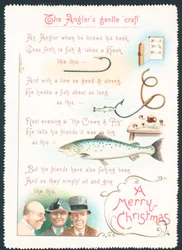 The Angler's gentle craft
An Angler when he knows his book,
Goes forth to fish & takes a Hook
like this —
And with a line as good & strong
He hooks a fish about as long
as this —
Next evening at "the Crown & Pig"
He tells his friends it was as big
as this —
But his friends have also fishing been
And so they simply sit and grin
like this.
A
Merry
Christmas